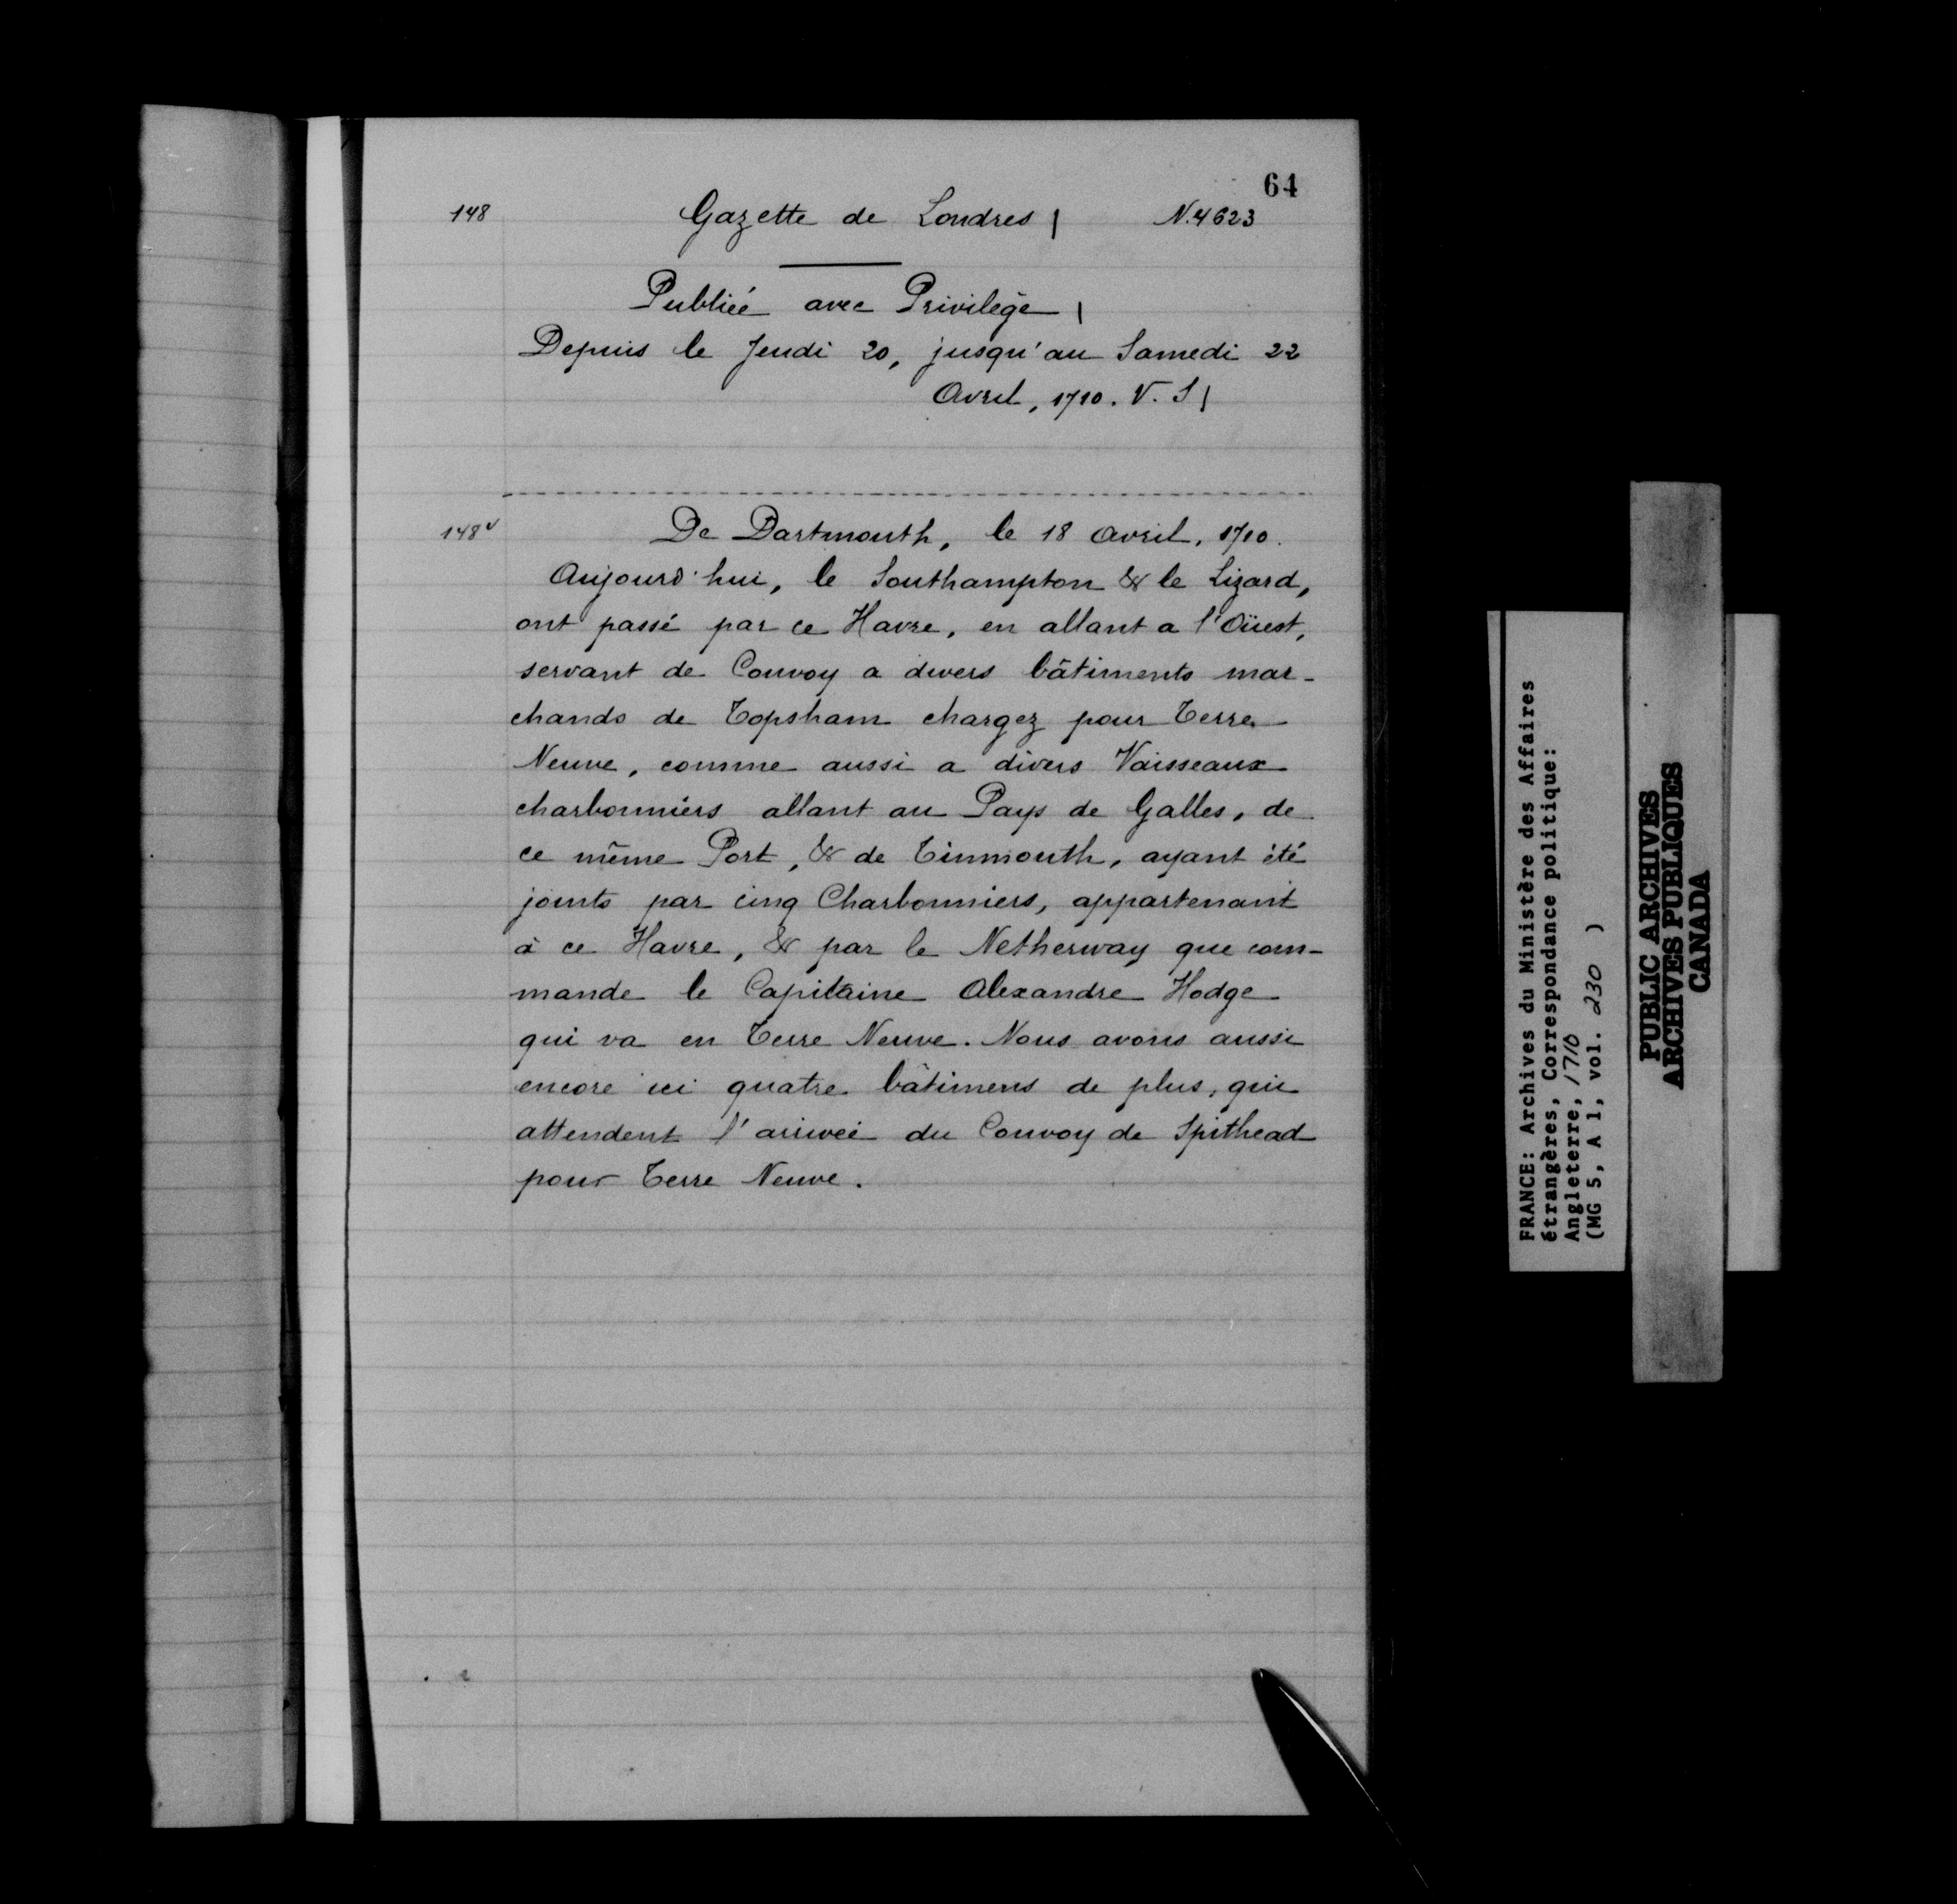 64
148 Gazette de Londres | N. 4623
Publiée avec Privilège |
Depuis le Jeudi 20, jusqu'au Samedi 22
Avril, 1710. V. S |
148v De Dartmouth, le 18 Avril, 1710.
Aujourd'hui, le Southampton & le Lizard,
ont passé par ce Havre, en allant a l'Oüest,
servant de Convoy a divers bâtiments mar-
chands de Topsham chargez pour Terre
Neuve, comme aussi a divers Vaisseaux
charbonniers allant au Pays de Galles, de
ce même Port, & de Tinmouth, ayant été
joints par cinq Charbonniers, appartenant
à ce Havre, & par le Netherway que com-
mande le Capitaine Alexandre Hodge
qui va en Terre Neuve. Nous avons aussi
encore ici quatre bâtimens de plus, qui
attendent l'arivée du Convoy de Spithead
pour Terre Neuve.
FRANCE: Archives du Ministère des Affaires
étrangères, Correspondance politique:
Angleterre, 1710
(MG 5, A 1, vol. 230 )
PUBLIC ARCHIVES
ARCHIVES PUBLIQUES
CANADA